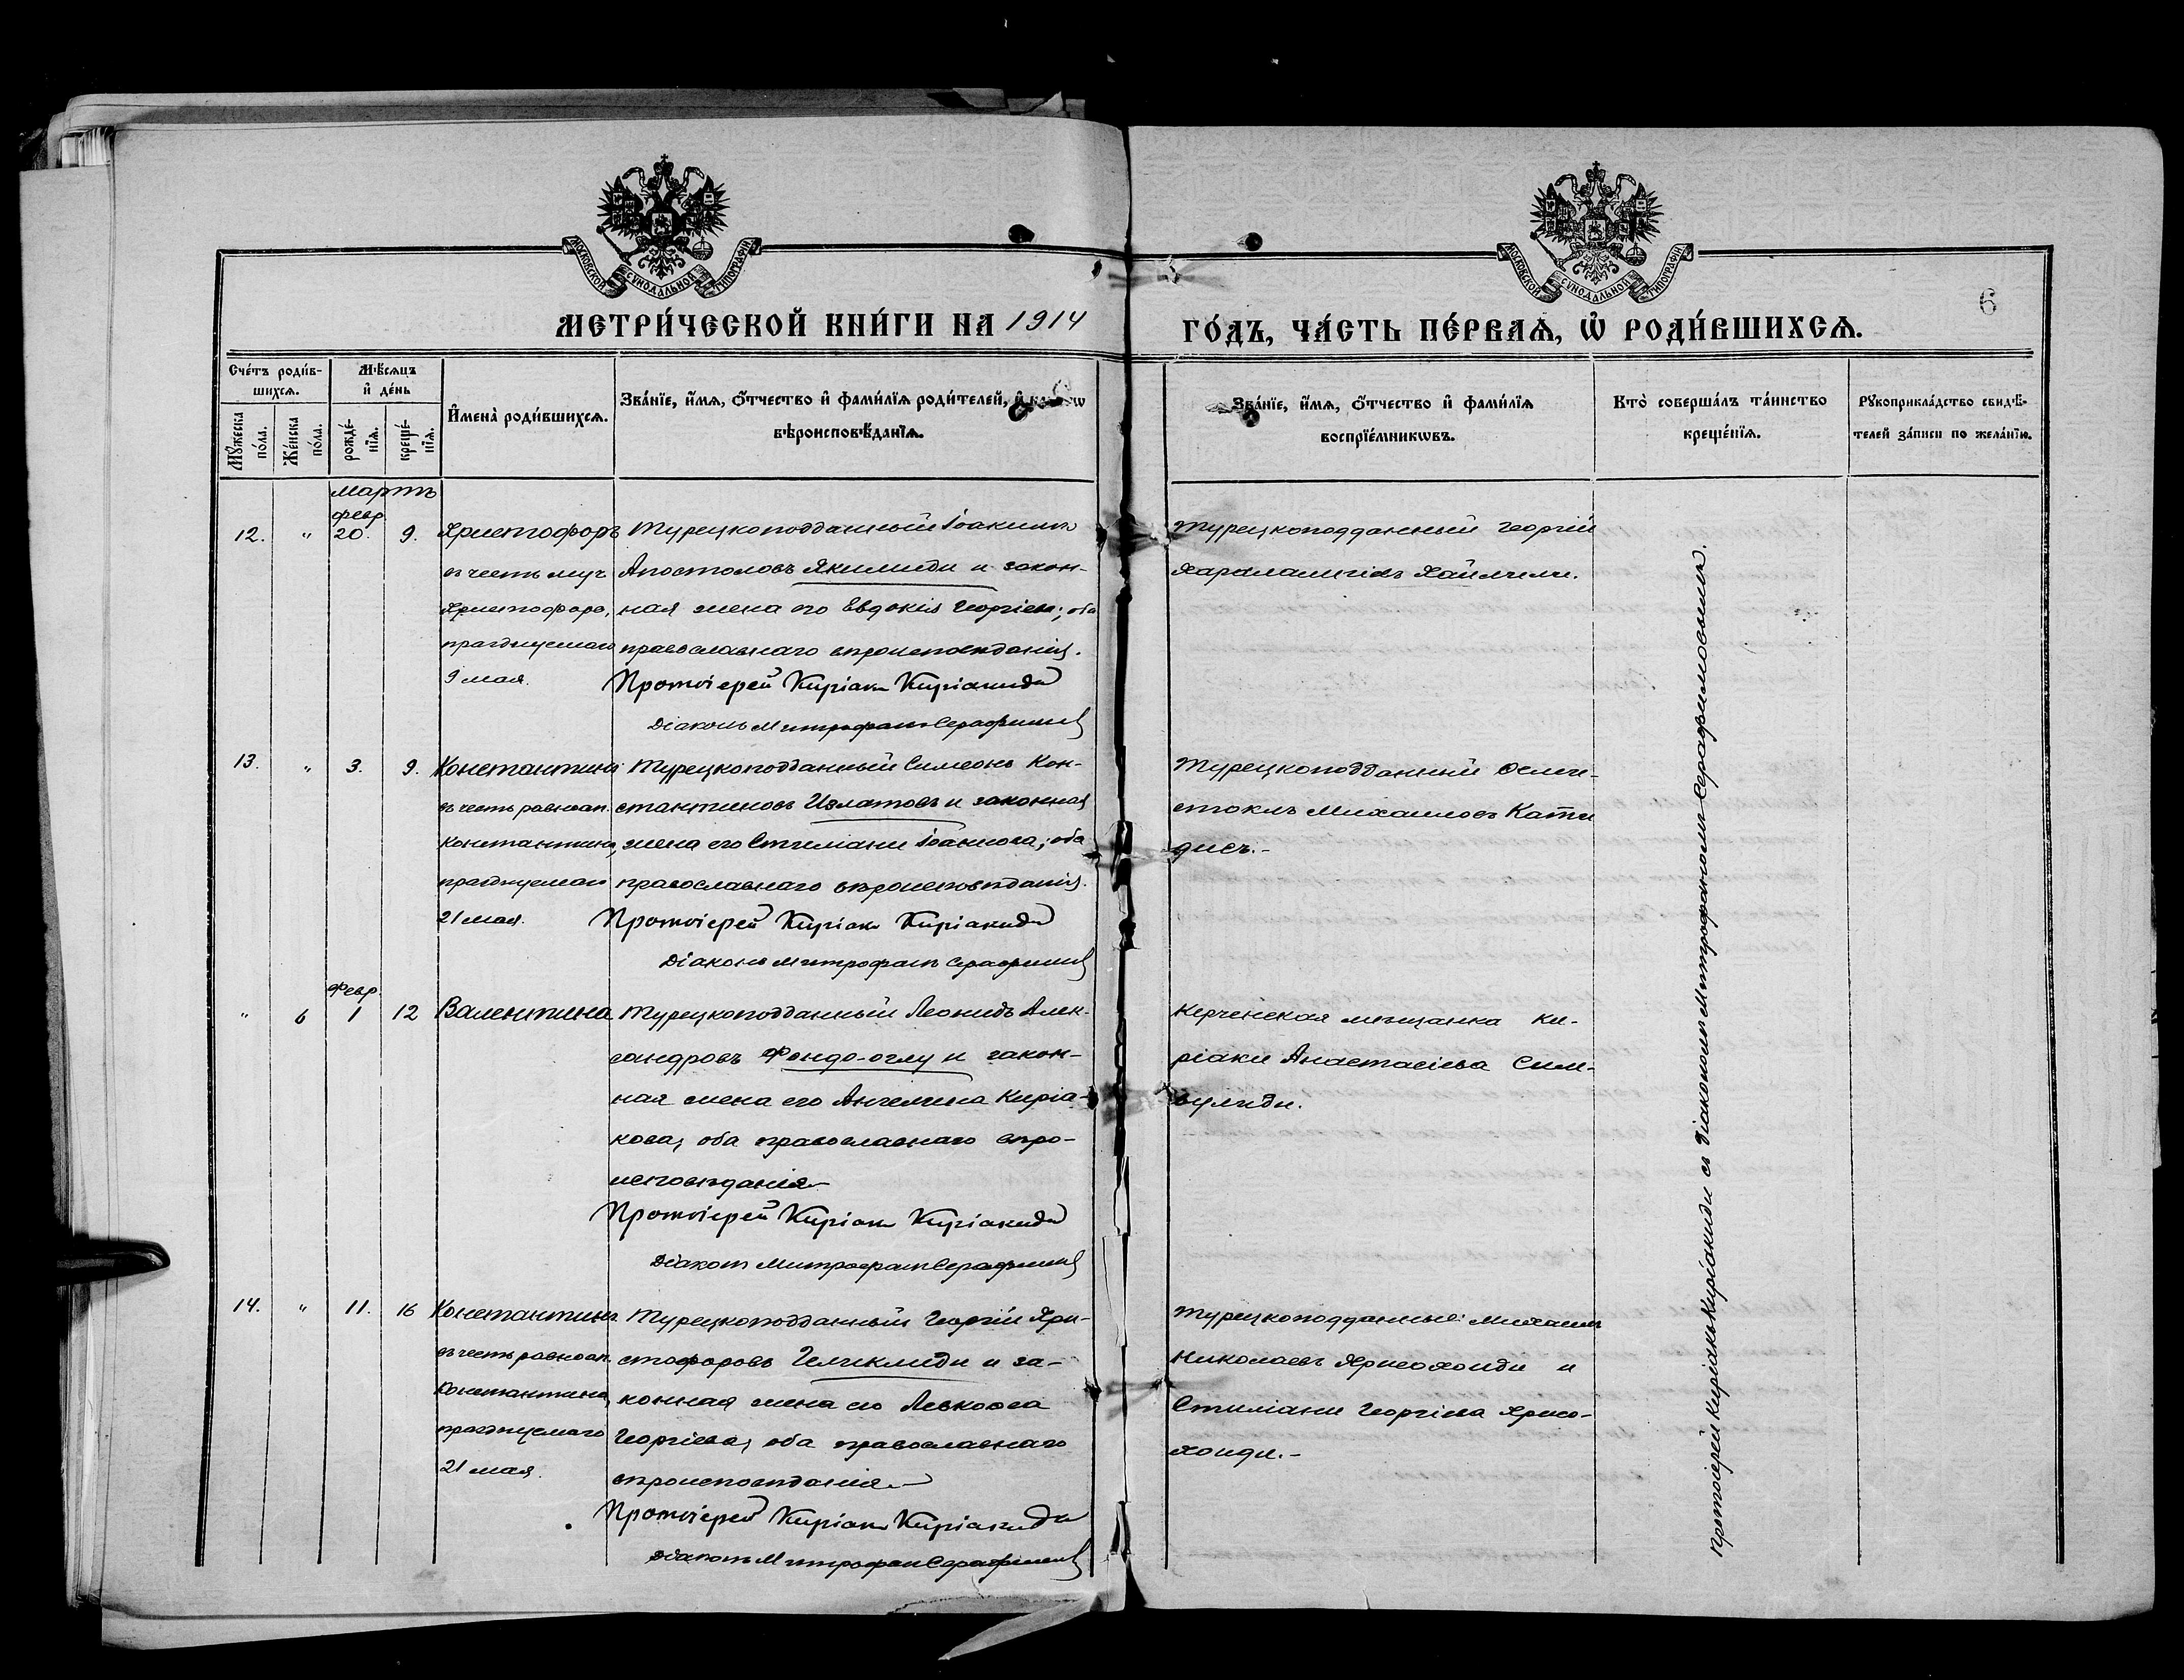 МОСКОВСКОЙ СѴНОДАЛЬНОЙ ТИПОГРАФІИ
МОСКОВСКОЙ СѴНОДАЛЬНОЙ ТИПОГРАФІИ
6
МЕТРИ́ЧЕСКОЙ КНИ́ГИ НА 1914 ГО́ДЪ, ЧА́СТЬ ПЕ́РВАѦ, Ѡ҆ РОДИ́ВШИХСѦ.
Сче́тъ роди́в-
шихсѧ.
Мꙋ́жеска
по́ла.
Же́нска
по́ла.
Мѣ́сѧцъ
и҆ де́нь
рожде́-
нїѧ.
креще́-
нїѧ.
И҆мена̀ роди́вшихсѧ.
Зва́нїе, и҆́мѧ, ѻ҆́тчество и҆ фами́лїѧ роди́телей, и҆
вѣроисповѣ́данїѧ.
Зва́нїе, и҆́мѧ, ѻ҆́тчество и҆ фами́лїѧ
воспрїе́мникѡвъ.
Кто̀ соверша́лъ та́инство
креще́нїѧ.
Рꙋкоприкла́дство свидѣ́-
телей за́писи по жела́нїю.
Мартъ
февр.
12. " 20. 9.
Христофоръ
въ честь муч.
Христофора,
празднуемаго
9 мая.
Турецкоподданный Іоакимъ
Апостоловъ Якимиди и закон-
ная жена его Евдокія Георгіева; оба
православнаго вѣроисповѣданія.
Протоіерей Киріакъ Киріакиди
Діаконъ Митрофанъ Серафимов
Турецкоподданный Георгій
Харалампіевъ
13. " 3. 9.
Константинъ
въ честь равноап.
Константина,
празднуемаго
21 мая.
Турецкоподданный Симеонъ Кон-
стантиновъ Излатовъ и законная
жена его Стиліани Іоаннова; оба
православнаго вѣроисповѣданія.
Протоіерей Киріакъ Киріакиди
Діаконъ Митрофанъ Серафимов
Турецкоподданный Ѳеми-
стоклъ Михаиловъ Кати
дисъ.-
февр.
" 6 1 12
Валентина
Турецкоподданный Леонидъ Алек-
сандровъ Фондо-оглу и закон-
ная жена его Ангелина Киріа-
кова, оба православнаго вѣро-
исповѣданія.-
Протоіерей Киріакъ Киріакиди
Діаконъ Митрофанъ Серафимов
Керченская мѣщанка Ки-
ріаки Анастасіева Сим-
вулиди.
14. " 11. 16
Константинъ
въ честь равноап.
Константина,
празднуемаго
21 мая.
Турецкоподданный Георгій Хри-
стофоровъ и за-
конная жена его Левкоѳеа
Георгіева, оба православнаго
вѣроисповѣданія.-
Протоіерей Киріакъ Киріакиди
Діаконъ Митрофанъ Серафимов
Турецкоподданные: Михаилъ
Николаевъ Хрисохоиди и
Стиліани Георгіева Хрисо-
хоиди.-
Протоіерей Киріакъ Киріакиди съ діакономъ Митрофаномъ Серафимовымъ.